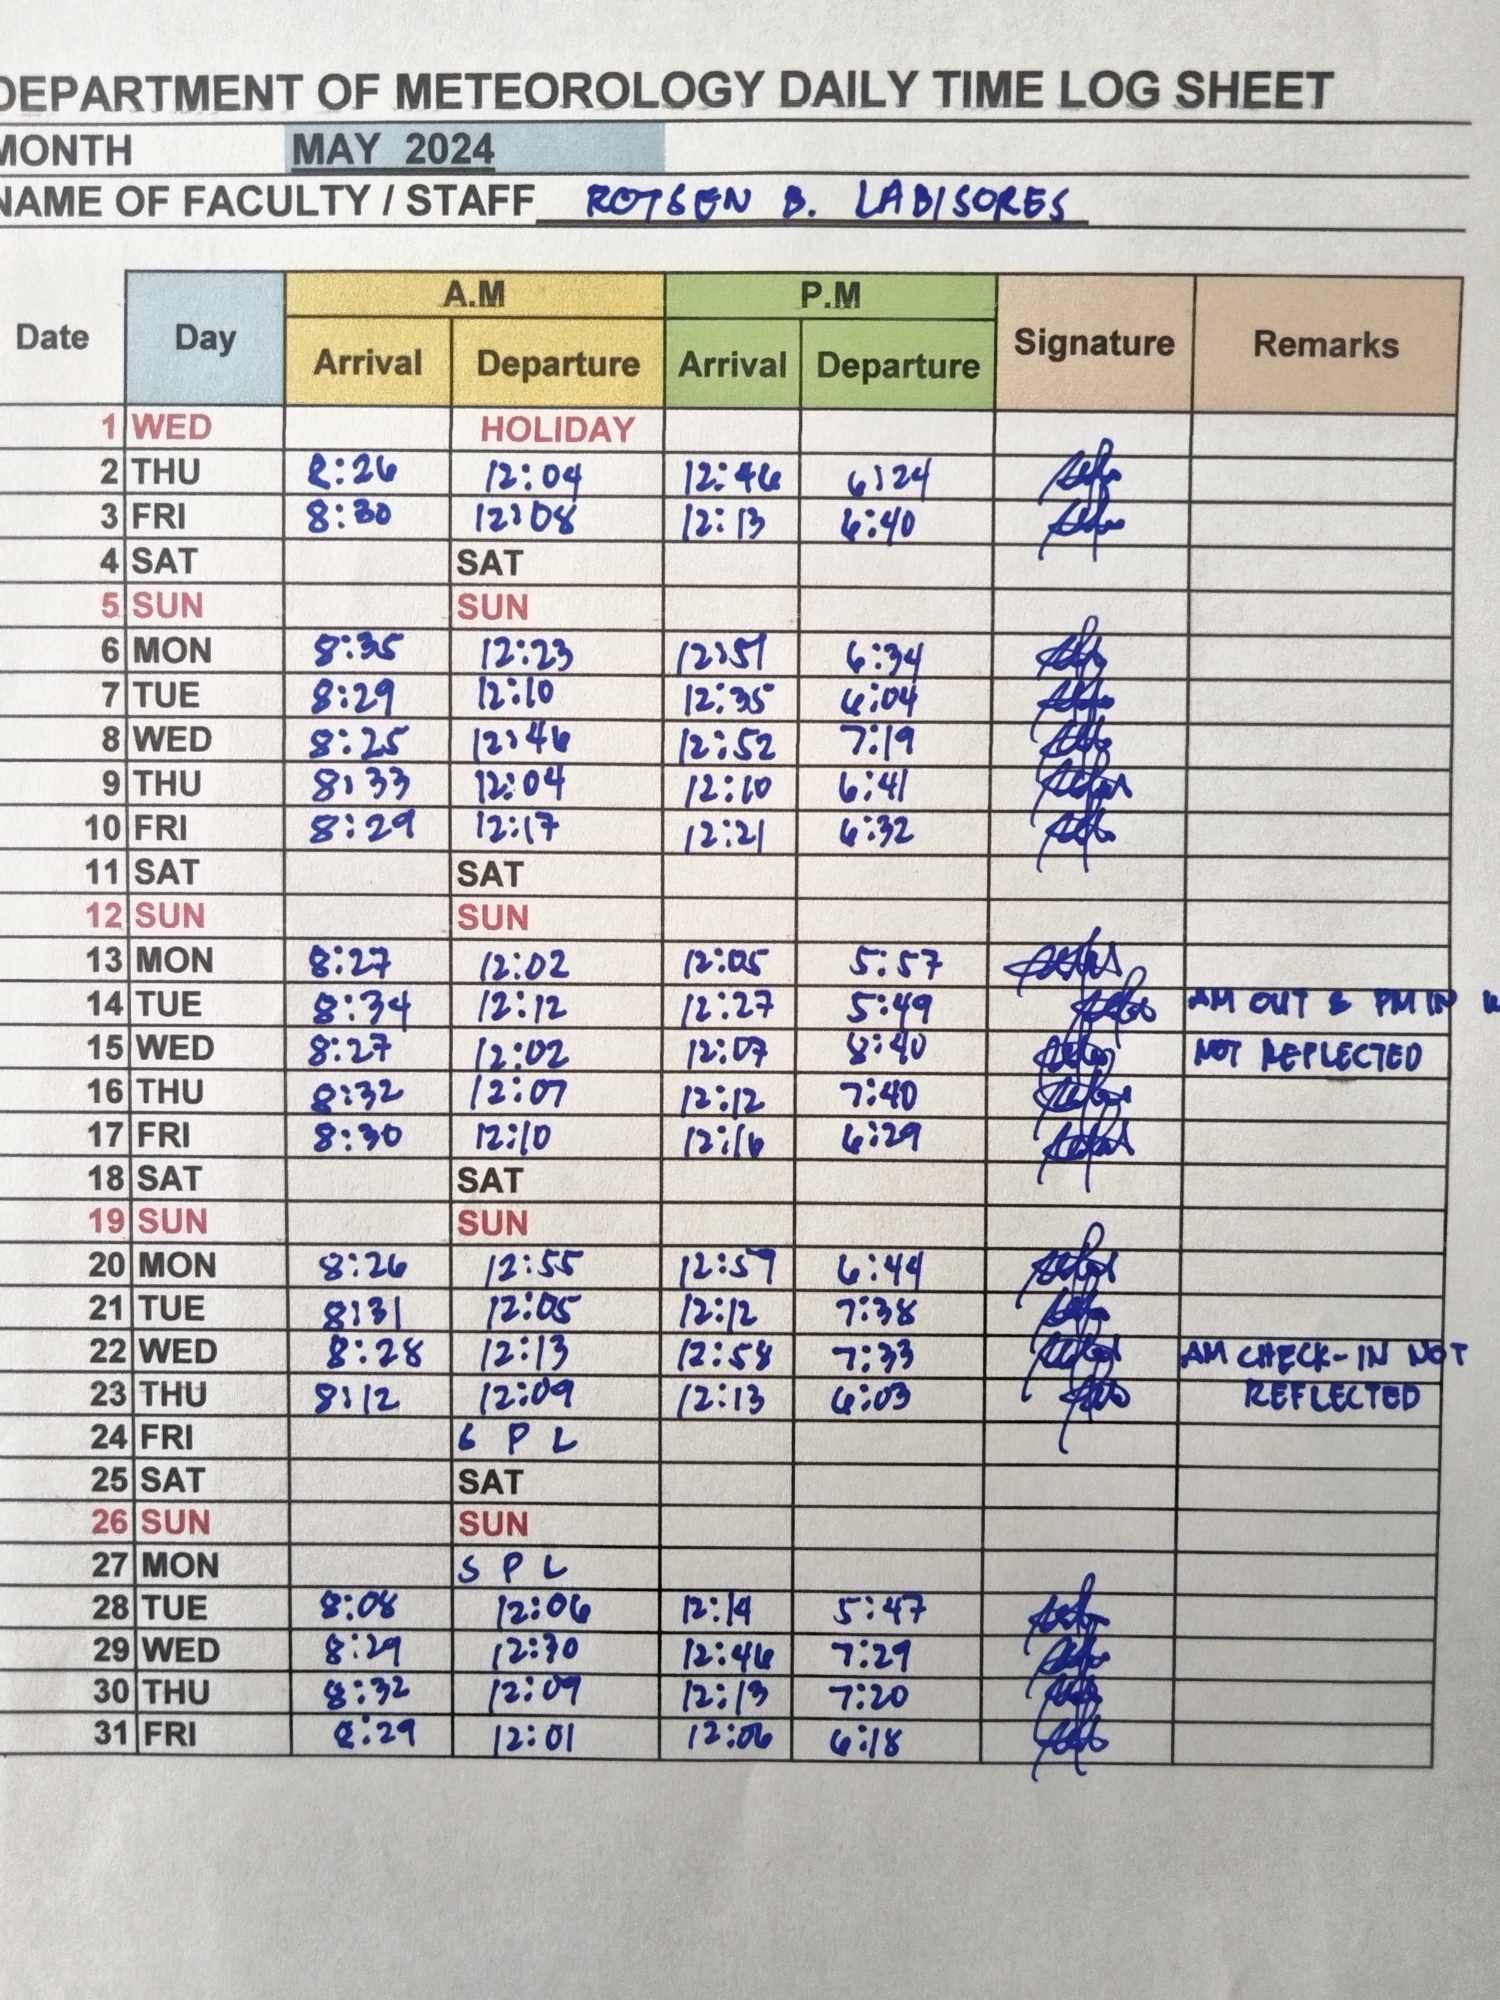 DEPARTMENT OF METEOROLOGY DAILY TIME LOG SHEET
MONTH MAY 2024
NAME OF FACULTY / STAFF ROTSEN B. LABISORES
Date Day A.M P.M Signature Remarks
Arrival Departure Arrival Departure
1 WED HOLIDAY
2 THU 8:26 12:04 12:46 6:24
3 FRI 8:30 12:08 12:13 6:40
4 SAT SAT
5 SUN SUN
6 MON 8:35 12:23 12:51 6:34
7 TUE 8:29 12:10 12:35 6:04
8 WED 8:25 12:46 12:52 7:19
9 THU 8:33 12:04 12:10 6:41
10 FRI 8:29 12:17 12:21 6:32
11 SAT SAT
12 SUN SUN
13 MON 8:27 12:02 12:05 5:57
14 TUE 8:34 12:12 12:27 5:49 AM OUT & PM IN
15 WED 8:27 12:02 12:07 8:40 NOT REFLECTED
16 THU 8:32 12:07 12:12 7:40
17 FRI 8:30 12:10 12:16 6:29
18 SAT SAT
19 SUN SUN
20 MON 8:26 12:55 12:59 6:44
21 TUE 8:31 12:05 12:12 7:38
22 WED 8:28 12:13 12:58 7:33 AM CHECK-IN NOT
23 THU 8:12 12:09 12:13 6:03 REFLECTED
24 FRI S P L
25 SAT SAT
26 SUN SUN
27 MON S P L
28 TUE 8:08 12:06 12:14 5:47
29 WED 8:29 12:30 12:46 7:29
30 THU 8:32 12:09 12:13 7:20
31 FRI 8:29 12:01 12:06 6:18